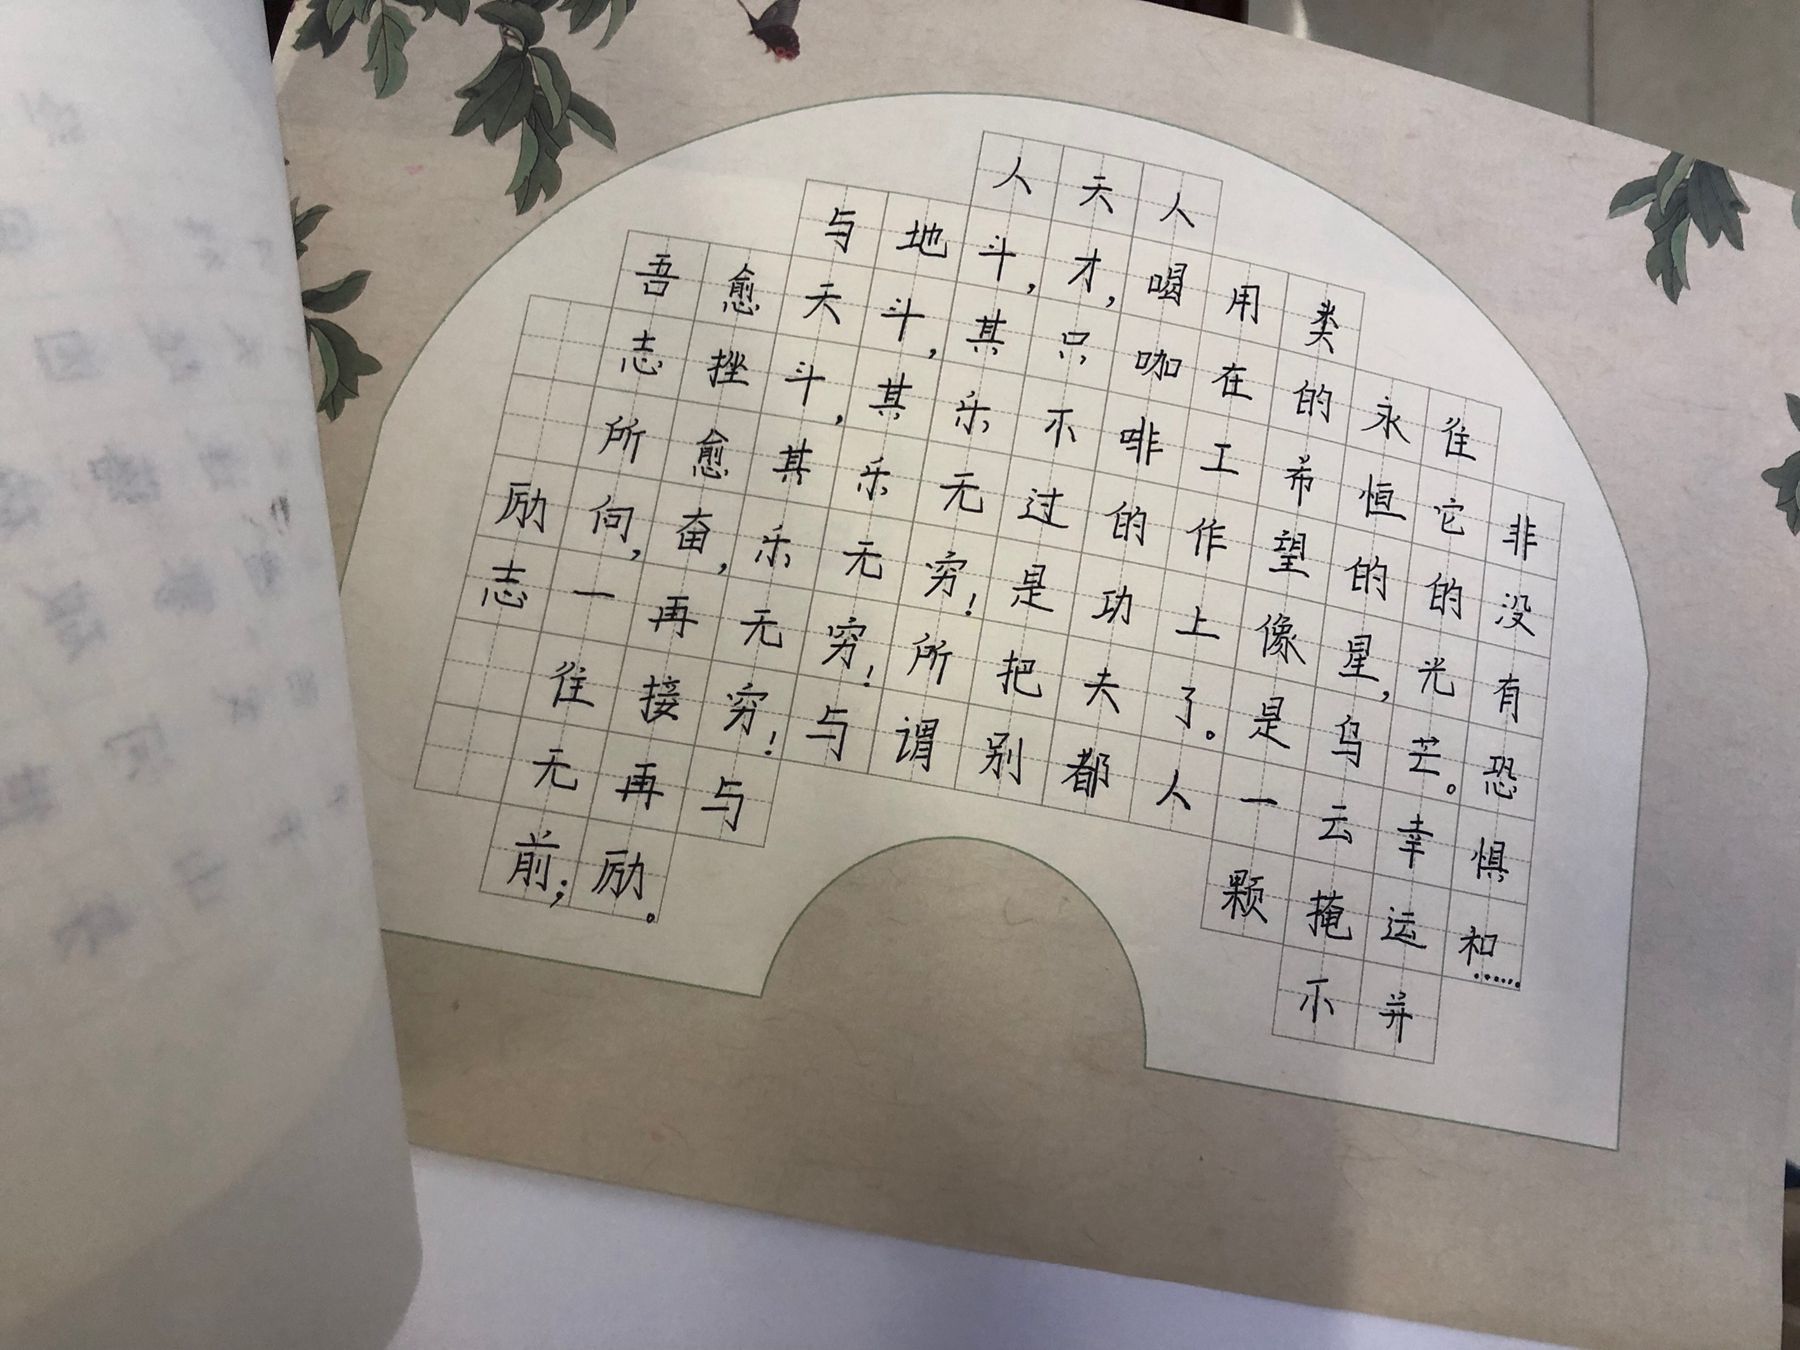 励志
吾志所向,一往无前;
愈挫愈奋,再接再励。
与天斗,其乐无穷!与
地斗,其乐无穷!与
人斗,其乐无穷!所谓
天才,只不过是把别
人喝咖啡的功夫都
用在工作上了。人
类的希望像是一颗
永恒的星,乌云掩不
往它的光芒。幸运并
非没有恐惧和……